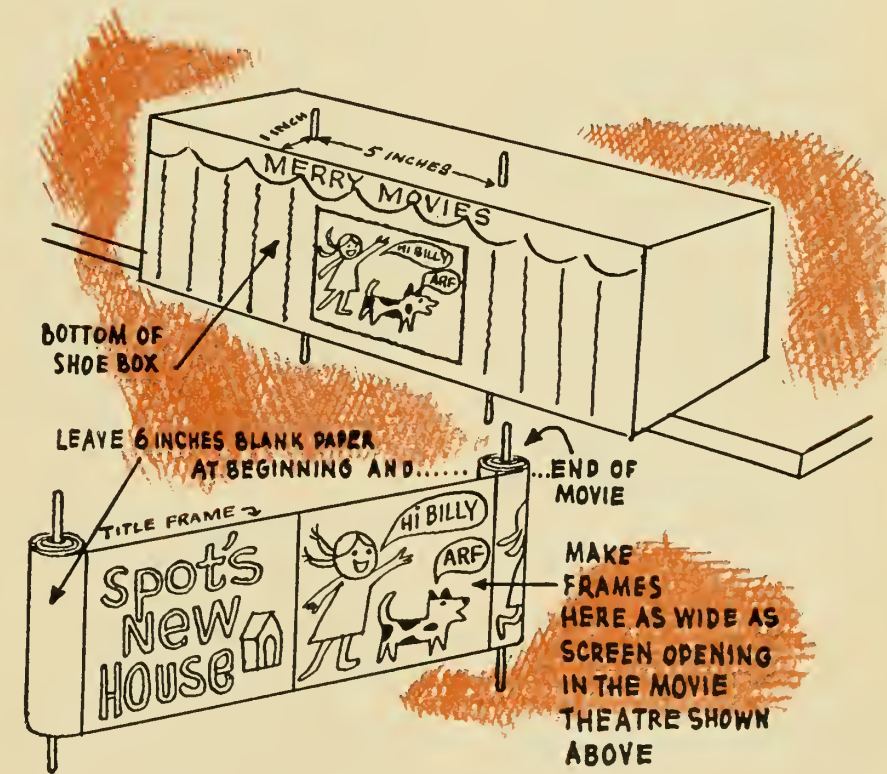 1 INCH
5 INCHES
MERRY MOVIES
HI BILLY
ARF
BOTTOM OF
SHOE BOX
LEAVE 6 INCHES BLANK PAPER
AT BEGINNING AND......
...END OF
MOVIE
TITLE FRAME
Spot's
New
House
Hi BILLY
ARF
MAKE
FRAMES
HERE AS WIDE AS
SCREEN OPENING
IN THE MOVIE
THEATRE SHOWN
ABOVE